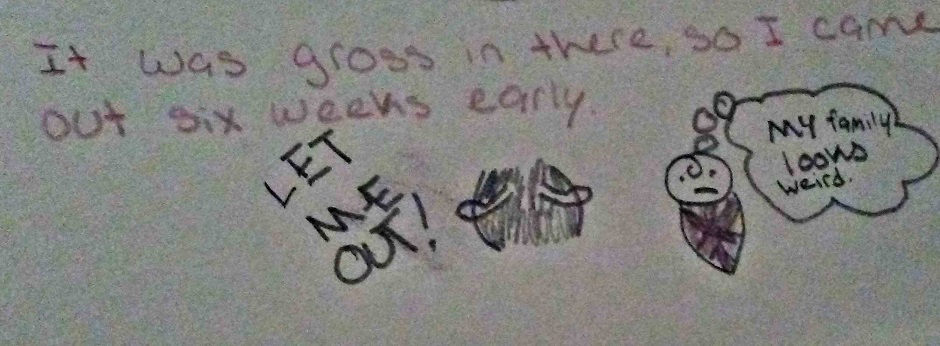 It was gross in there, so I came
out six weeks early.
LET
ME
OUT!
My family
looks
weird.